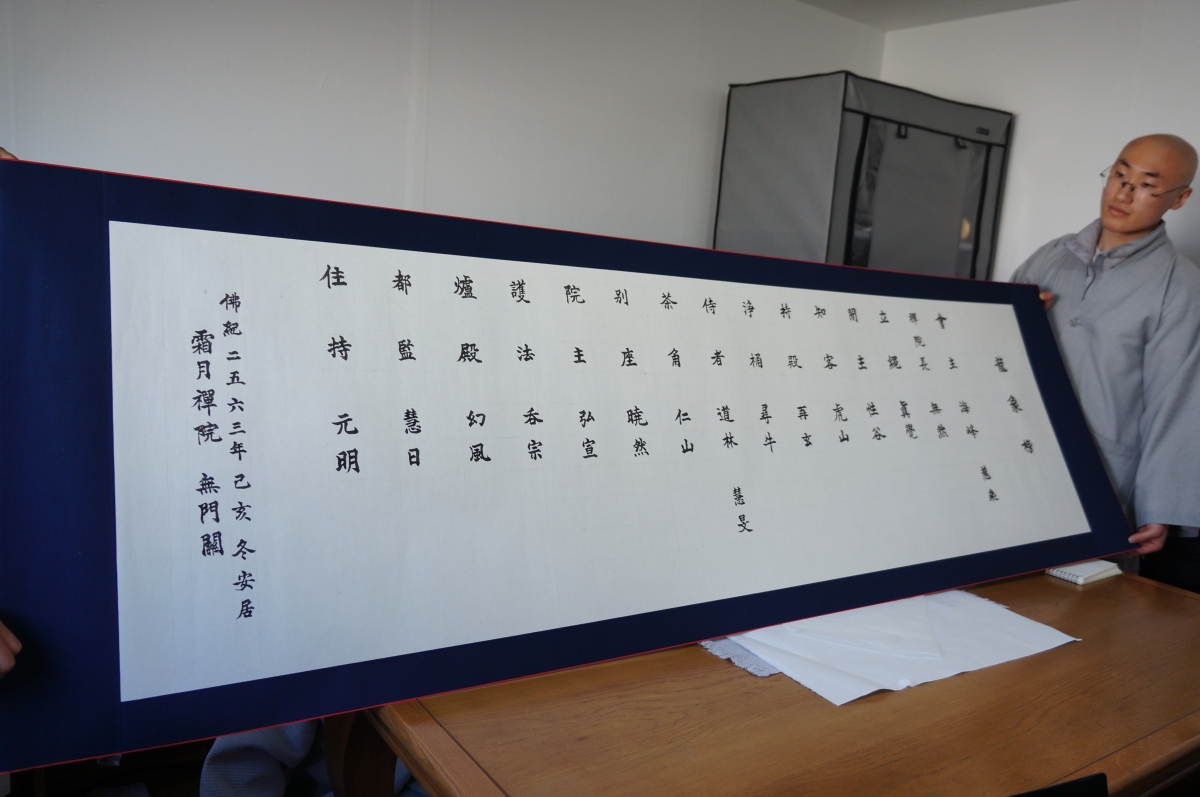 龍象榜
會主 海峰
禪院長 無然
立繩 眞覺
閒主 性谷
知客 虎山
持殿 再玄
淨桶 尋牛
侍者 道林 慧旻
茶角 仁山
别座 暁然
院主 弘宣
護法 呑宗
爐殿 幻風
都監 慧日
住持 元明
佛紀 二五六三年 己亥 冬安居
霜月禪院 無門關